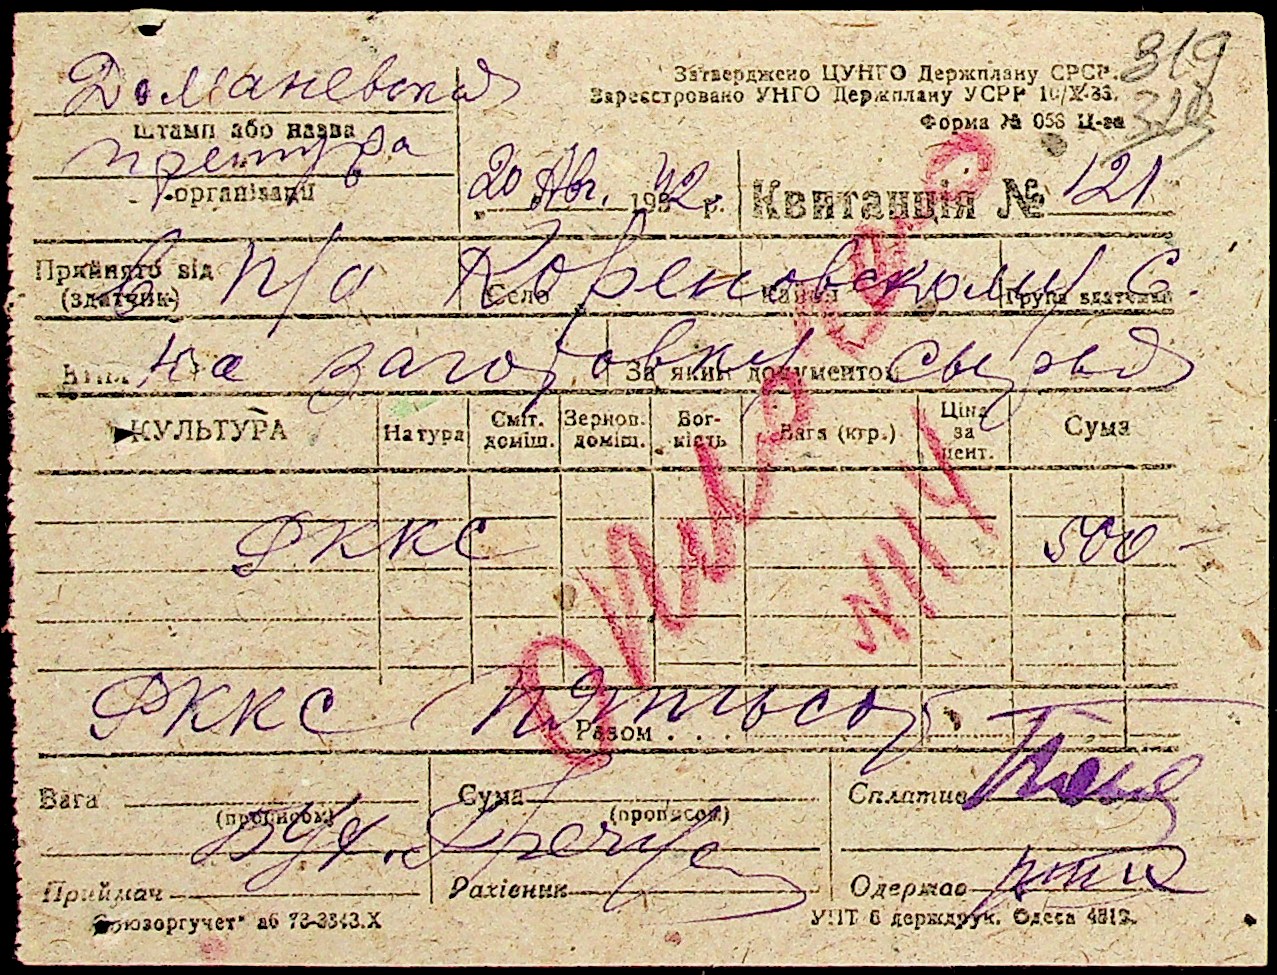 319
Доманевская
Затверджено ЦУНГО Держплану СРСР.
Зареєстровано УНГО Держплану УСРР 10/X-36.
Форма № 058 Ц-за
штамп або назва
претура
організації
20 Авг. 1942 р.
Квитанція № 121
Прийнято від
(здатчик)
В п/о Кореновскому С.
Село
Група здатчика
на заготовку сырья
За яким документом
КУЛЬТУРА Натура Сміт. доміш. Зернов. доміш. Вог-кість Вага (кгр.) Ціна за цент. Сума
РККС 500 -
N 14
РККС Пятьсот
Разом . . .
Вага
(прописом)
Сума
(прописом)
Сплатив
Бух.
Приймач
Рахівник
Одержав
"Союзоргучет" аб 73-3343.X
УПТ 6 держдрук. Одеса